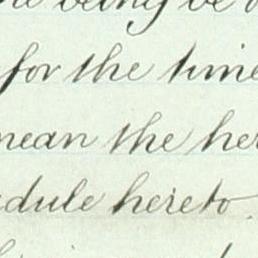 being be
for the time
mean the her
edule hereto